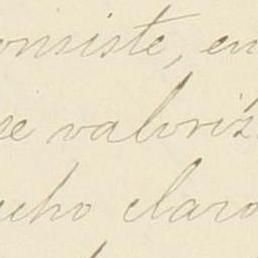 onsiste, en
se valoriz
ucho claro